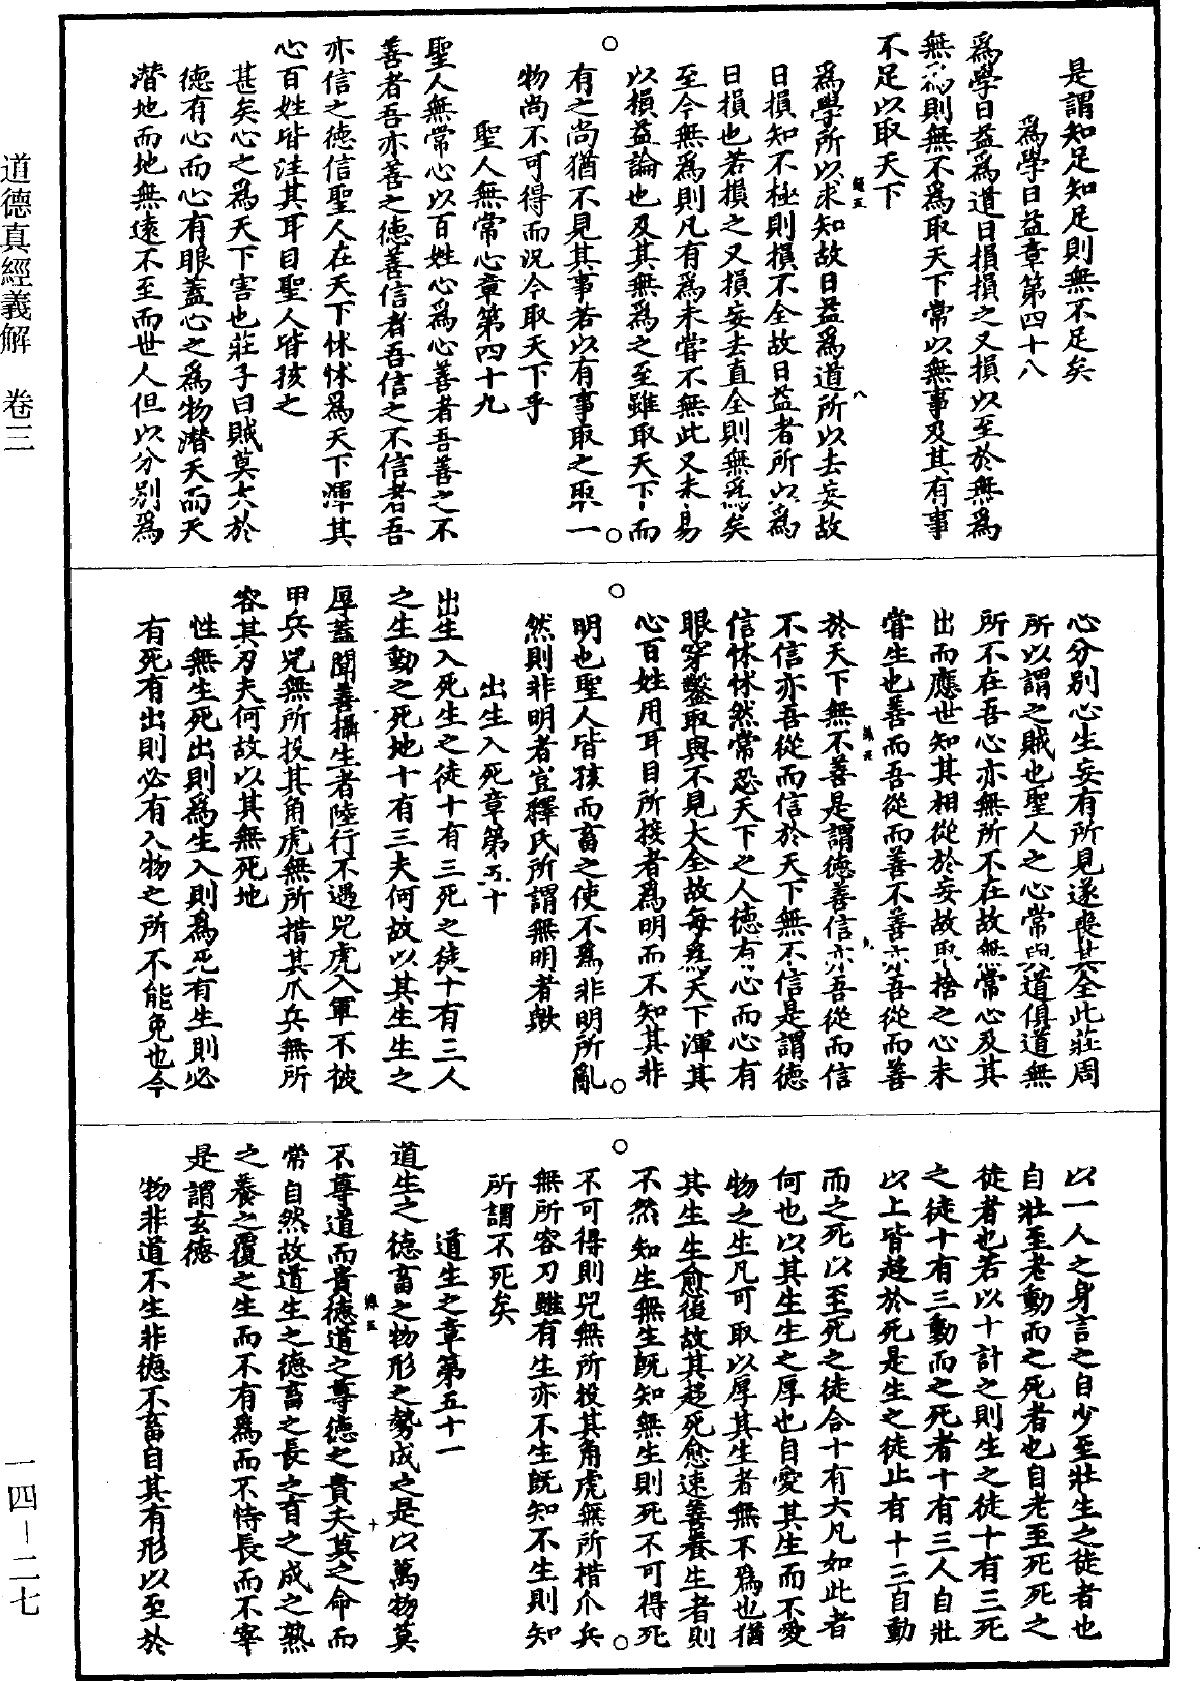 是謂知足知足則無不足矣
爲學日益章第四十八
爲學日益爲道日損損之又損以至於無爲
無爲則無不爲取天下常以無事及其有事
不足以取天下
爲學所以求知故日益爲道所以去妄故
日損知不極則損不全故日益者所以爲
日損也若損之又損妄去直全則無爲矣
至今無爲則凡有爲未嘗不無此又未易
以損益論也及其無爲之至雖取天下而
有之尚猶不見其事若以有事取之取一
物尚不可得而況今取天下乎
聖人無常心章第四十九
聖人無常心以百姓心爲心善者吾善之不
善者吾亦善之德善信者吾信之不信者吾
亦信之德信聖人在天下怵怵爲天下渾其
心百姓皆注其耳目聖人皆孩之
甚矣心之爲天下害也莊子曰賊莫大於
德有心而心有眼蓋心之爲物潜天而天
潜地而地無遠不至而世人但以分別爲
心分別心生妄有所見遂喪其全此莊周
所以謂之賊也聖人之心常與道俱道無
所不在吾心亦無所不在故無常心及其
出而應世知其相從於妄故取捨之心未
嘗生也善而吾從而善不善亦吾從而善
於天下無不善是謂德善信亦吾從而信
不信亦吾從而信於天下無不信是謂德
信怵怵然常恐天下之人德有心而心有
眼穿鑿取與不見大全故每爲天下渾其
心百姓用耳目所接者爲明而不知其非
明也聖人皆孩而畜之使不爲非明所亂
然則非明者豈釋氏所謂無明者歟
出生入死章第五十
出生入死生之徒十有三死之徒十有三人
之生動之死地十有三夫何故以其生生之
厚蓋聞善攝生者陸行不遇兕虎入軍不被
甲兵兕無所投其角虎無所措其爪兵無所
容其刃夫何故以其無死地
性無生死出則爲生入則爲死有生則必
有死有出則必有入物之所不能免也今
以一人之身言之自少至壯生之徒者也
自壯至老動而之死者也自老至死死之
徒者也若以十計之則生之徒十有三死
之徒十有三動而之死者十有三人自壯
以上皆趍於死是生之徒止有十三自動
而之死以至死之徒合十有六凡如此者
何也以其生生之厚也自愛其生而不愛
物之生凡可取以厚其生者無不爲也猶
其生生愈後故其趍死愈速善養生者則
不然知生無生旣知無生則死不可得死
不可得則兕無所投其角虎無所措介兵
無所容刀雖有生亦不生旣知不生則知
所謂不死矣
道生之章第五十一
道生之德畜之物形之勢成之是以萬物莫
不尊道而貴德道之尊德之貴夫莫之命而
常自然故道生之德畜之長之育之成之熟
之養之覆之生而不有爲而不恃長而不宰
是謂玄德
物非道不生非德不畜自其有形以至於
道德真經義解　卷三
一四－二七